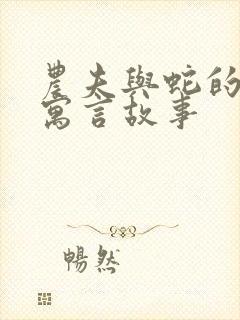 農夫與蛇的
寓言故事
暢然